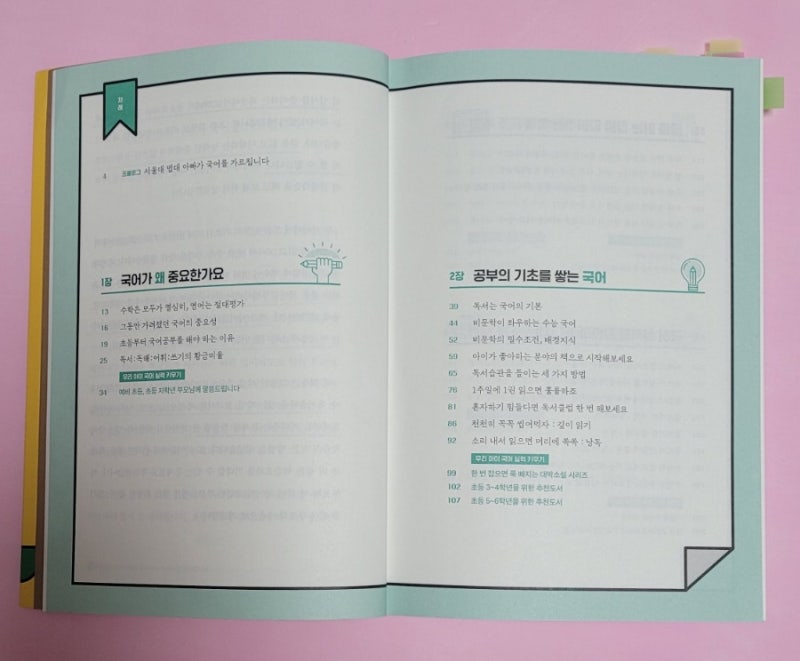 차례
4 프롤로그 서울대 법대 아빠가 국어를 가르칩니다
1장 국어가 왜 중요한가요
13 수학은 모두가 열심히, 영어는 절대평가
16 그동안 가려졌던 국어의 중요성
19 초등부터 국어공부를 해야 하는 이유
25 독서:독해:어휘:쓰기의 황금비율
우리 아이 국어 실력 키우기
34 예비 초등, 초등 저학년 부모님께 말씀드립니다
2장 공부의 기초를 쌓는 국어
39 독서는 국어의 기본
44 비문학이 좌우하는 수능 국어
52 비문학의 필수조건, 배경지식
59 아이가 좋아하는 분야의 책으로 시작해보세요
65 독서습관을 들이는 세 가지 방법
76 1주일에 1권 읽으면 훌륭하죠
81 혼자하기 힘들다면 독서클럽 한 번 해보세요
86 천천히 꼭꼭 씹어먹자 : 깊이 읽기
92 소리 내서 읽으면 머리에 쏙쏙 : 낭독
우리 아이 국어 실력 키우기
99 한 번 잡으면 푹 빠지는 대하소설 시리즈
102 초등 3~4학년을 위한 추천도서
107 초등 5~6학년을 위한 추천도서